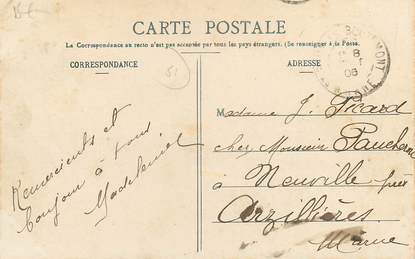 CARTE POSTALE
La Correspondance au recto n'est pas acceptée par tous les pays étrangers. (Se renseigner à la Poste.
CORRESPONDANCE
ADRESSE
51
Remerciements et
bonjour à tous
Madeleine
Madame J. Picard
chez Monsieur
à Neuville près
Arzillières
Marne